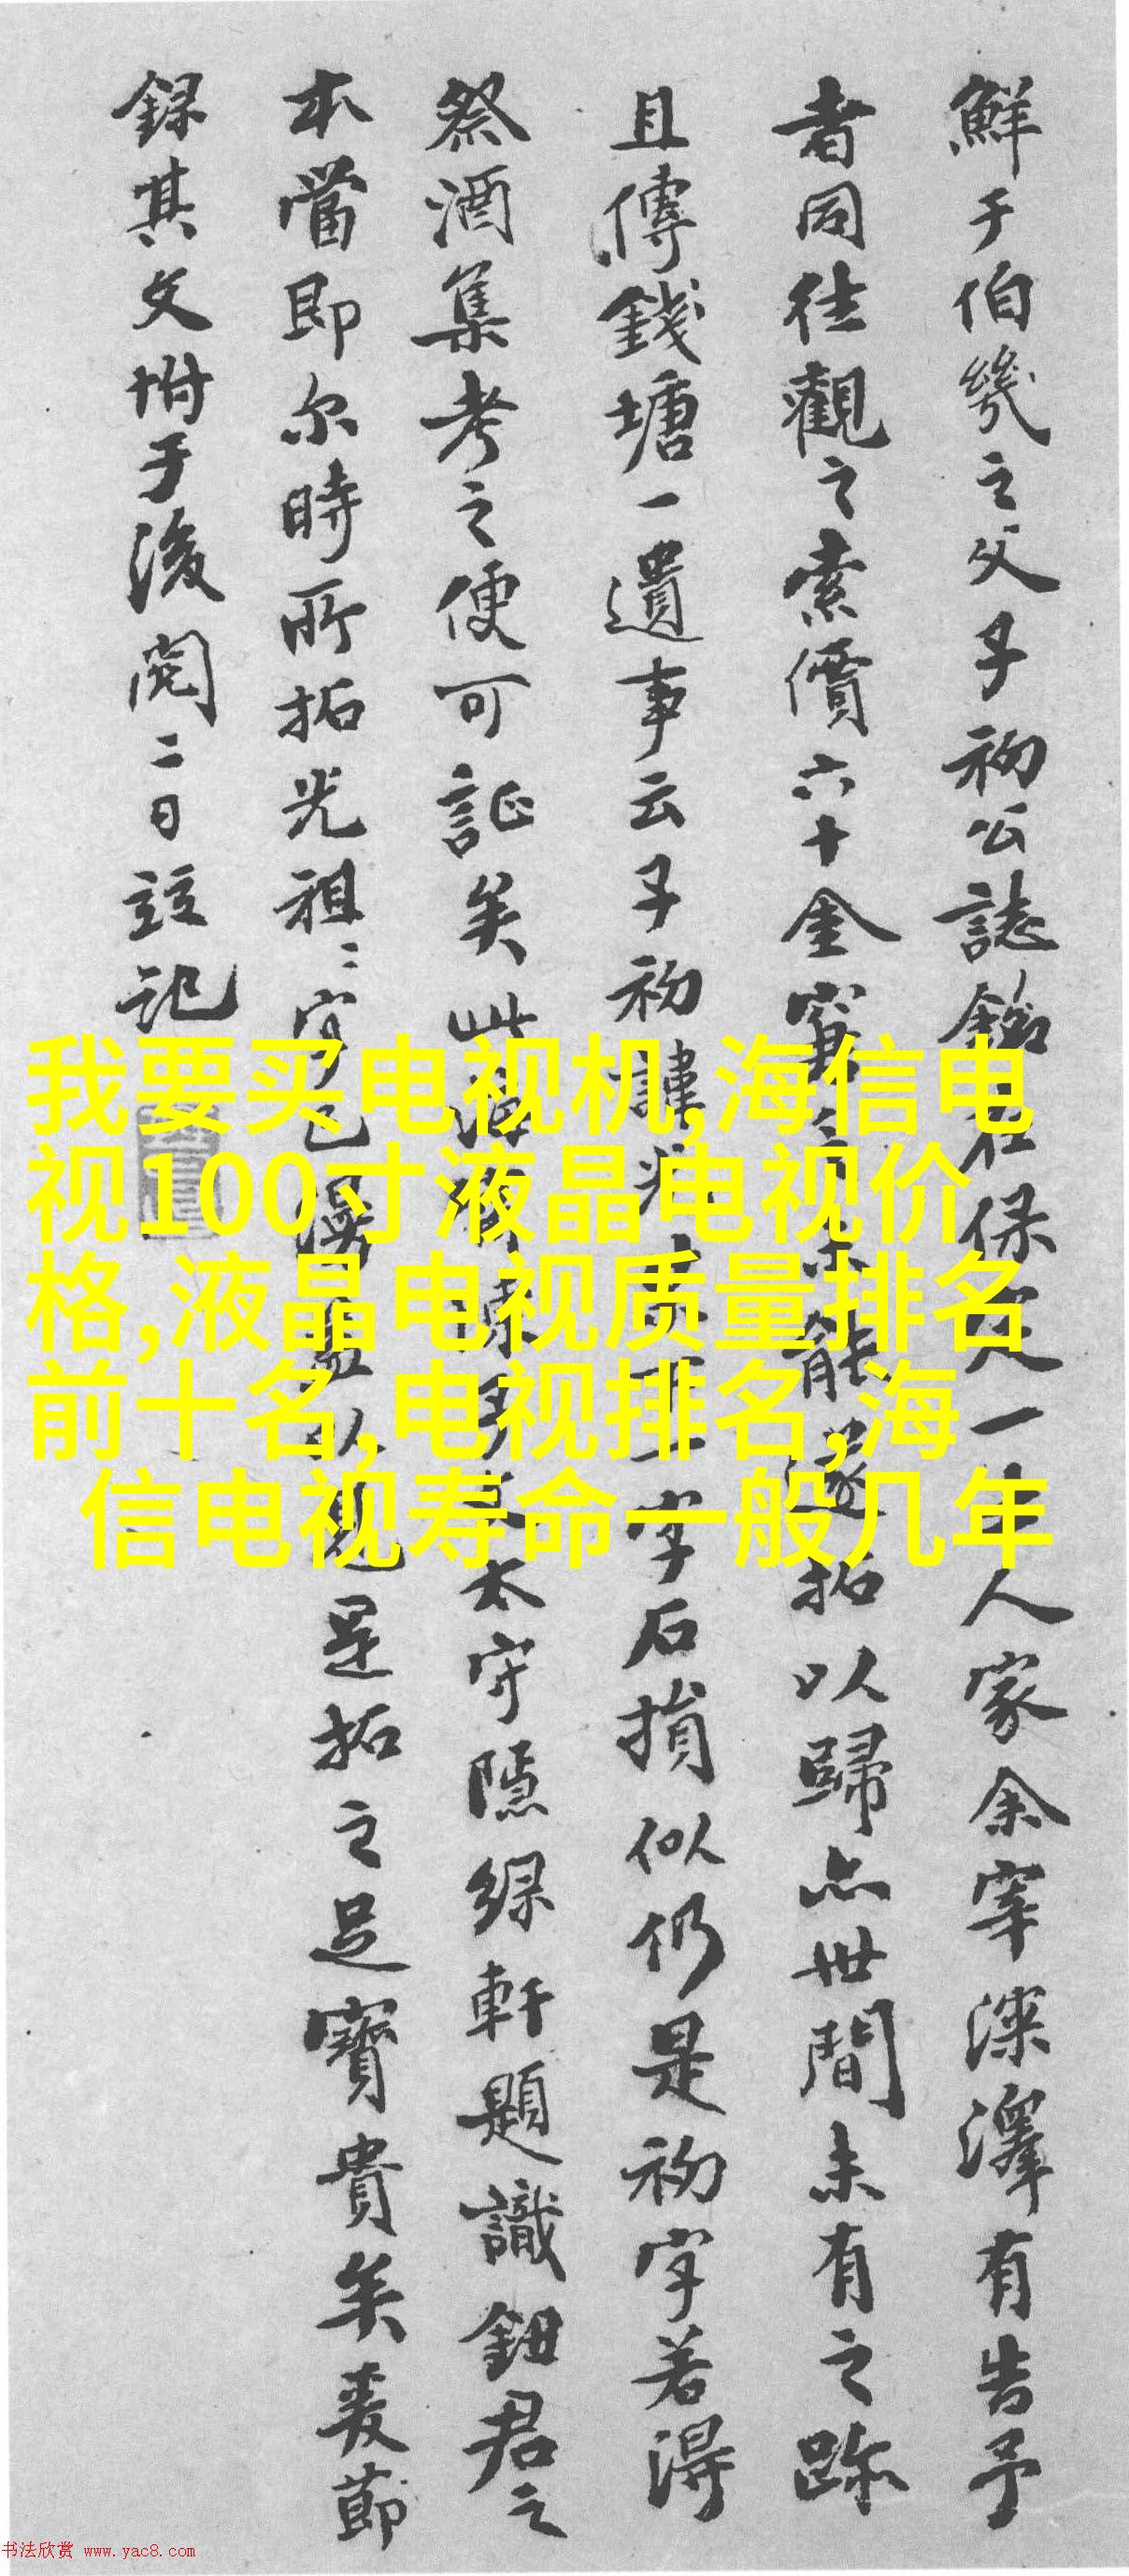 鮮于伯幾之父子初公誌銘在保定一人家余宰深澤有告予
者同往觀之索價六十金能遂拓以歸亦世間未有之跡
且傳錢塘一遺事云子初諱光一字石損似仍是初字若得
祭酒集考之便可証矣此海太守隱綠軒題識鈕君之
本當即尔時所拓光祖二字已漫以見是拓之足寶貴矣爰節
錄其文坿于後二日記
我要买电视机,海信电
视100寸液晶电视价
格,液晶电视质量排名
前十名,电视排名,海
信电视寿命一般几年
书法欣赏 www.yac8.com